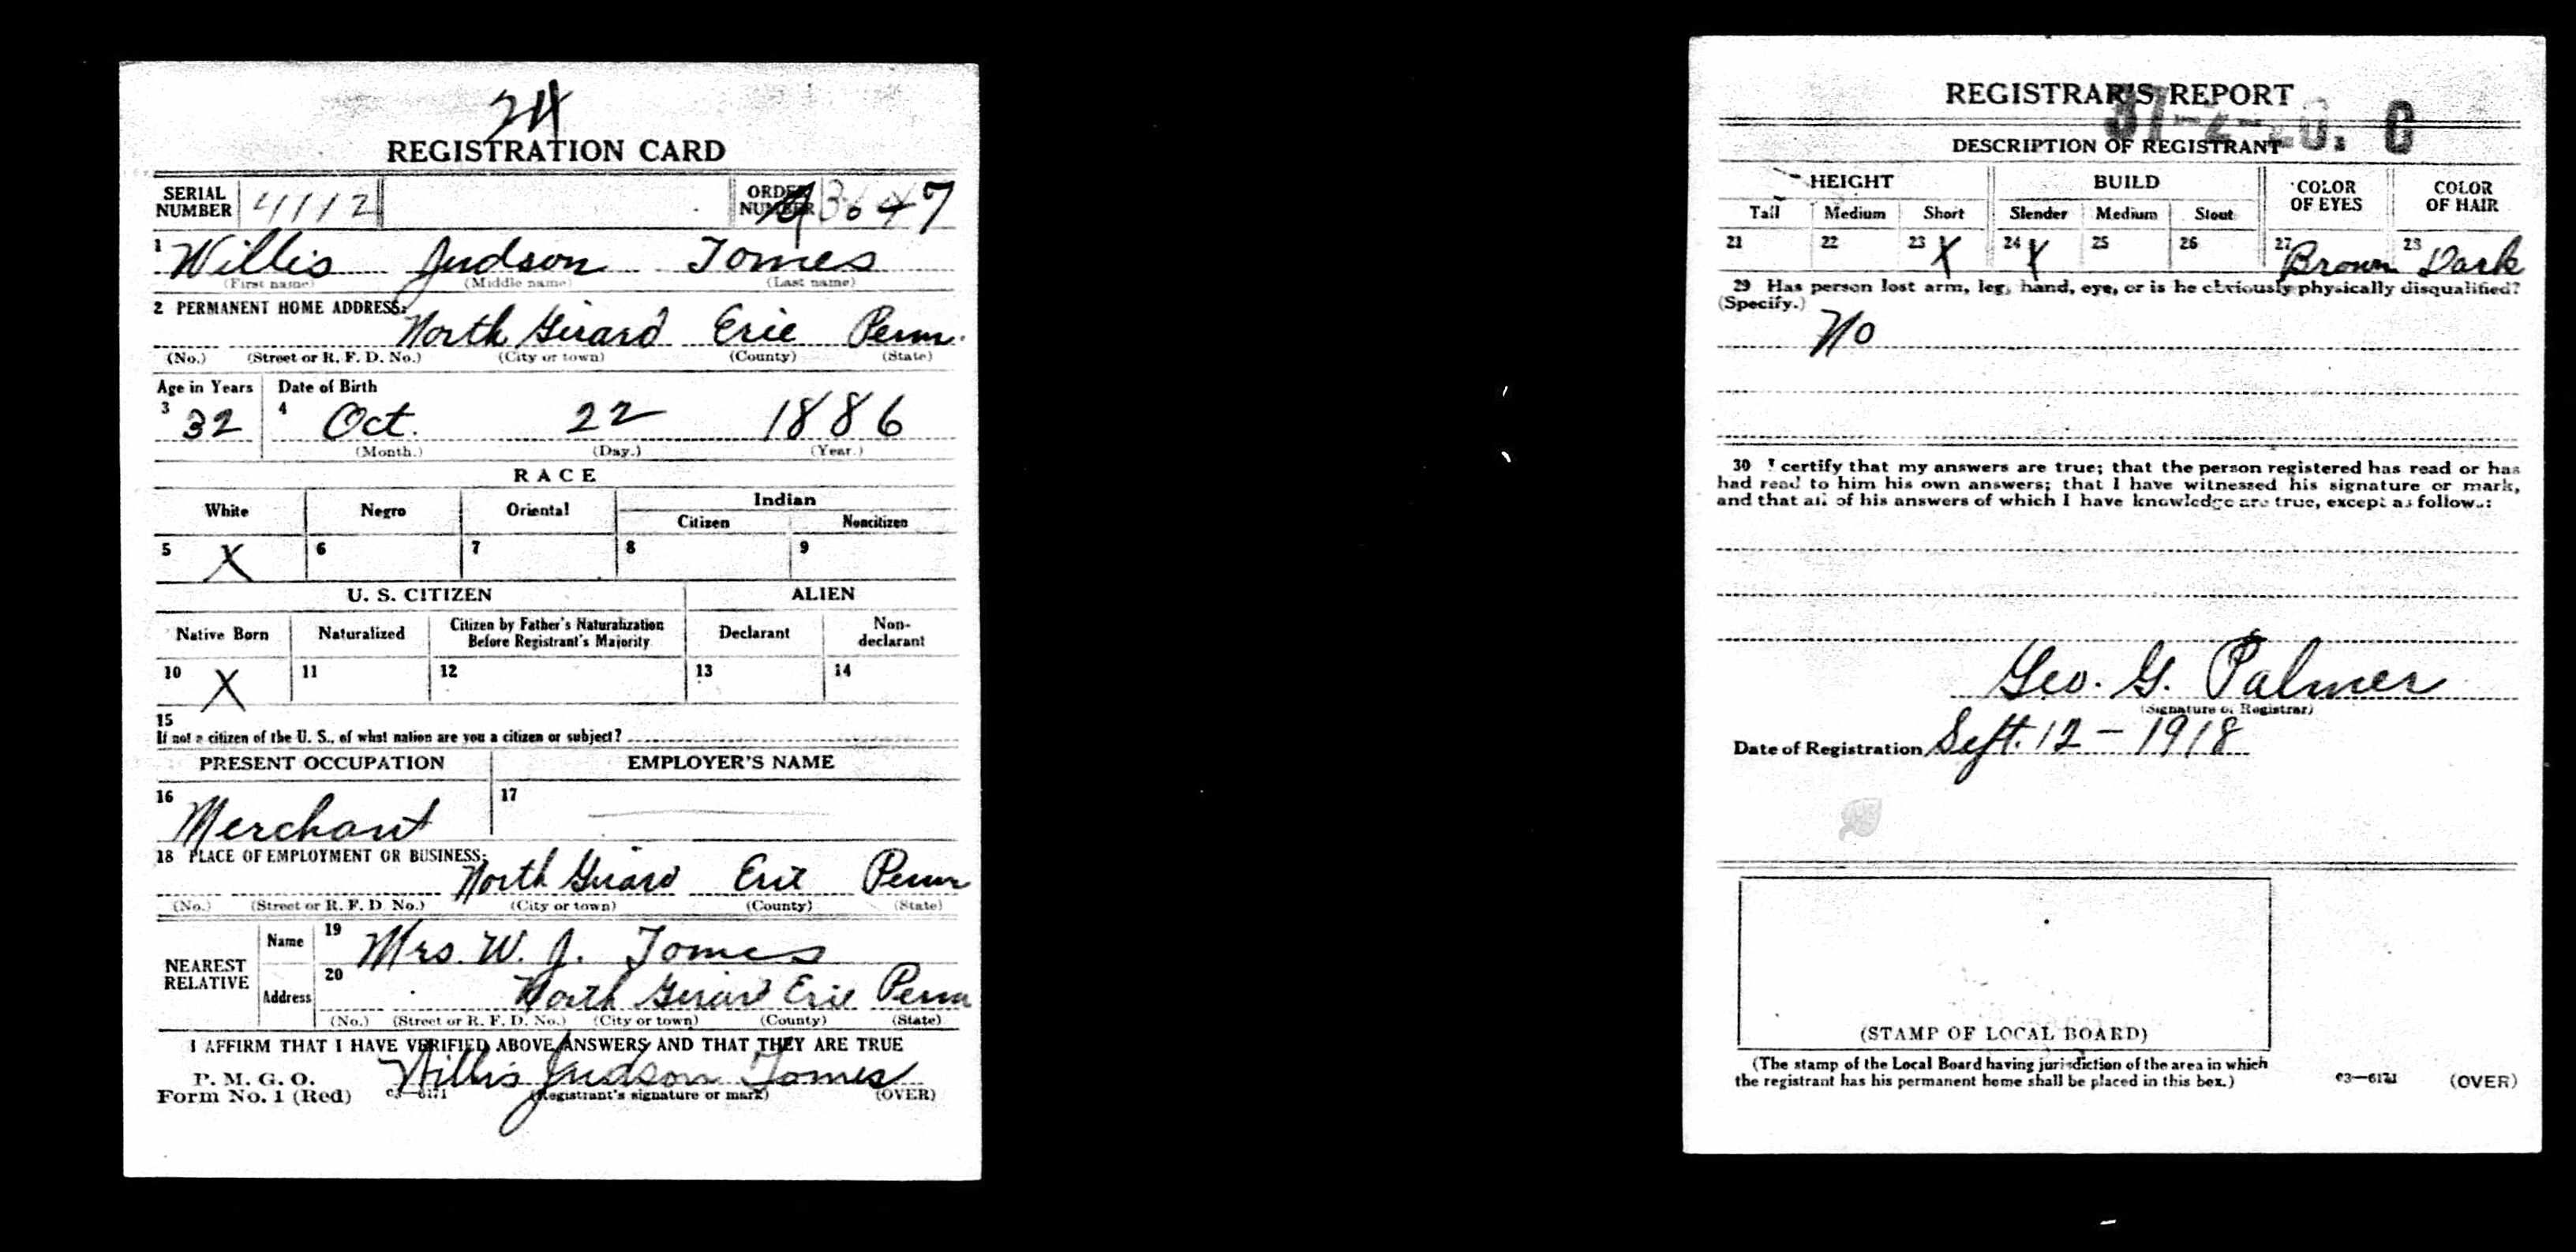 24
REGISTRATION CARD
SERIAL NUMBER 4112 ORDER NUMBER 3647
1 Willis Judson Tomes
(First name) (Middle name) (Last name)
2 PERMANENT HOME ADDRESS:
North Girard Erie Penn.
(No.) (Street or R. F. D. No.) (City or town) (County) (State)
Age in Years Date of Birth
3 32 4 Oct. 22 1886
(Month.) (Day.) (Year.)
RACE
White Negro Oriental Indian
Citizen Noncitizen
5 X 6 7 8 9
U. S. CITIZEN ALIEN
Native Born Naturalized Citizen by Father's Naturalization Before Registrant's Majority Declarant Non-declarant
10 X 11 12 13 14
15
If not a citizen of the U. S., of what nation are you a citizen or subject?
PRESENT OCCUPATION EMPLOYER'S NAME
16 Merchant 17
18 PLACE OF EMPLOYMENT OR BUSINESS:
North Girard Erie Penn
(No.) (Street or R. F. D. No.) (City or town) (County) (State)
NEAREST RELATIVE
Name 19 Mrs. W. J. Tomes
Address 20 North Girard Erie Penn
(No.) (Street or R. F. D. No.) (City or town) (County) (State)
I AFFIRM THAT I HAVE VERIFIED ABOVE ANSWERS AND THAT THEY ARE TRUE
P. M. G. O.
Form No. 1 (Red) Willis Judson Tomes
(Registrant's signature or mark) (OVER)
REGISTRAR'S REPORT
37-2-20. C
DESCRIPTION OF REGISTRANT
HEIGHT BUILD COLOR OF EYES COLOR OF HAIR
Tall Medium Short Slender Medium Stout
21 22 23 X 24 X 25 26 27 Brown 28 Dark
29 Has person lost arm, leg, hand, eye, or is he obviously physically disqualified?
(Specify.)
No
30 I certify that my answers are true; that the person registered has read or has
had read to him his own answers; that I have witnessed his signature or mark,
and that all of his answers of which I have knowledge are true, except as follows:
Geo. G. Palmer
(Signature of Registrar)
Date of Registration Sept. 12 - 1918
(STAMP OF LOCAL BOARD)
(The stamp of the Local Board having jurisdiction of the area in which
the registrant has his permanent home shall be placed in this box.)
03—6171 (OVER)